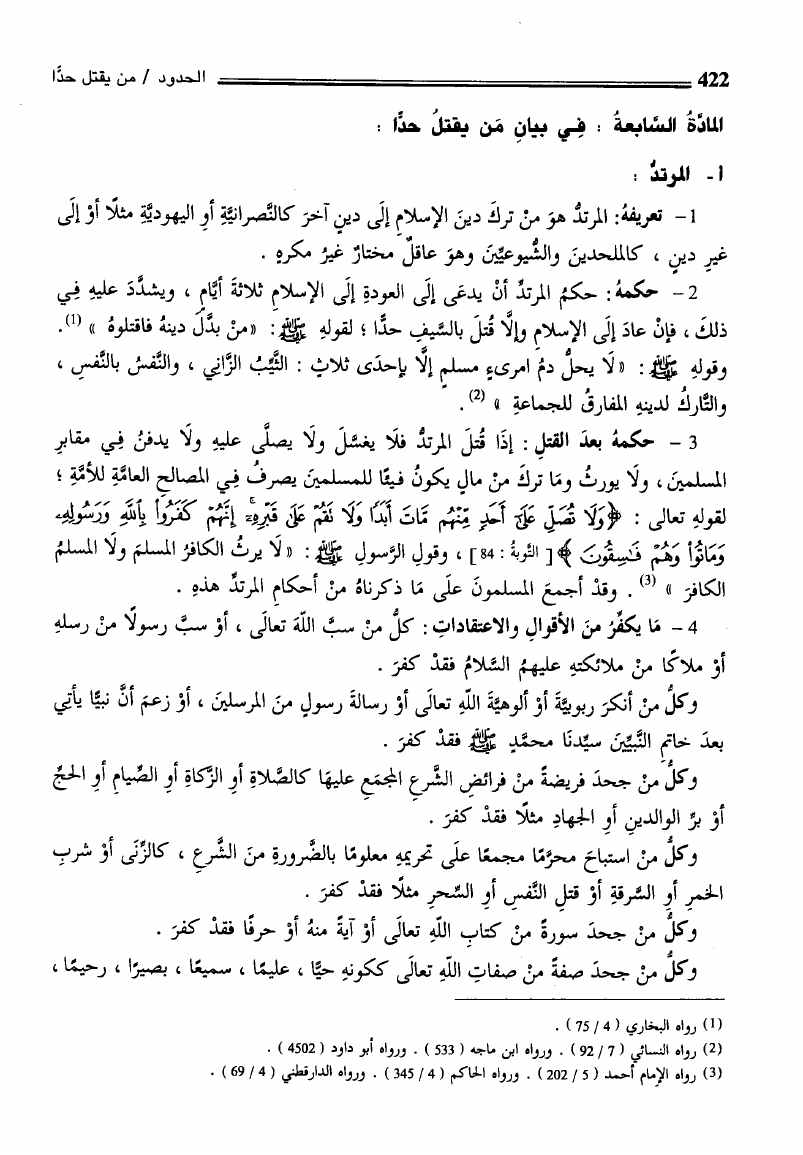 422 الحدود / من يقتل حدًّا
المادَّةُ السَّابعةُ : فِي بيانِ مَن يقتلُ حدًّا :
أ- المرتدُّ :
1- تعريفهُ: المرتدُّ هوَ منْ تركَ دينَ الإسلامِ إلَى دينٍ آخرَ كالنَّصرانيَّةِ أوِ اليهوديَّةِ مثلًا أوْ إلَى
غيرِ دينٍ ، كالملحدينَ والشُّيوعيِّينَ وهوَ عاقلٌ مختارٌ غيرُ مكرهٍ .
2- حكمهُ: حكمُ المرتدِّ أنْ يدعَى إلَى العودةِ إلَى الإسلامِ ثلاثةَ أيَّامٍ ، ويشدَّدَ عليهِ فِي
ذلكَ ، فإنْ عادَ إلَى الإسلامِ وإلَّا قُتلَ بالسَّيفِ حدًّا ؛ لقولهِ ﷺ: «منْ بدَّلَ دينهُ فاقتلوهُ » (1).
وقولهِ ﷺ : « لَا يحلُّ دمُ امرىءٍ مسلمٍ إلَّا بإحدَى ثلاثٍ : الثَّيِّبُ الزَّاني ، والنَّفسُ بالنَّفسِ ،
والتَّاركُ لدينهِ المفارقُ للجماعةِ » (2) .
3 - حكمهُ بعدَ القتلِ : إذَا قُتلَ المرتدُّ فلَا يغسَّلُ ولَا يصلَّى عليهِ ولَا يدفنُ فِي مقابرِ
المسلمينَ ، ولَا يورثُ ومَا تركَ منْ مالٍ يكونُ فيئًا للمسلمينَ يصرفُ فِي المصالحِ العامَّةِ للأمَّةِ ؛
لقولهِ تعالى : ﴿وَلَا تُصَلِّ عَلَىٰٓ أَحَدٍ مِّنْهُم مَّاتَ أَبَدًا وَلَا نَقُمْ عَلَىٰ قَبْرِهِۦٓ ۖ إِنَّهُمْ كَفَرُوا۟ بِٱللَّهِ وَرَسُولِهِۦ
وَمَاتُوا۟ وَهُمْ فَٰسِقُونَ ﴾[ التَّوبةُ : 84 ] ، وقولِ الرَّسولِ ﷺ: « لَا يرثُ الكافرُ المسلمَ ولَا المسلمُ
الكافرَ » (3) . وقدْ أجمعَ المسلمونَ علَى مَا ذكرناهُ منْ أحكامِ المرتدِّ هذهِ .
4 - مَا يكفِّرُ منَ الأقوالِ والاعتقاداتِ : كلُّ منْ سبَّ اللَّهَ تعالَى ، أوْ سبَّ رسولًا منْ رسلهِ
أوْ ملاكًا منْ ملائكتهِ عليهمُ السَّلامُ فقدْ كفرَ .
وكلُّ منْ أنكرَ ربوبيَّةَ أوْ ألوهيَّةَ اللَّهِ تعالَى أوْ رسالةَ رسولٍ منَ المرسلينَ ، أوْ زعمَ أنَّ نبيًّا يأتِي
بعدَ خاتمِ النَّبيِّينَ سيِّدنَا محمَّدٍ ﷺ فقدْ كفرَ .
وكلُّ منْ جحدَ فريضةً منْ فرائضِ الشَّرعِ المجمَعِ عليهَا كالصَّلاةِ أوِ الزَّكاةِ أوِ الصِّيامِ أوِ الحجِّ
أوْ برِّ الوالدينِ أوِ الجهادِ مثلًا فقدْ كفرَ .
وكلُّ منْ استباحَ محرَّمًا مجمعًا علَى تحريمهِ معلومًا بالضَّرورةِ منَ الشَّرعِ ، كالزِّنَى أوْ شربِ
الخمرِ أوِ السَّرقةِ أوْ قتلِ النَّفسِ أوِ السِّحرِ مثلًا فقدْ كفرَ .
وكلُّ منْ جحدَ سورةً منْ كتابِ اللَّهِ تعالَى أوْ آيةً منهُ أوْ حرفًا فقدْ كفرَ .
وكلُّ منْ جحدَ صفةً منْ صفاتِ اللَّهِ تعالَى ككونهِ حيًّا ، عليمًا ، سميعًا ، بصيرًا ، رحيمًا ،
(1) رواه البخاري ( 4 / 75 ) .
(2) رواه النسائي ( 7 / 92 ) . ورواه ابن ماجه ( 533 ) . ورواه أبو داود ( 4502 ) .
(3) رواه الإمام أحمد ( 5 / 202 ) . ورواه الحاكم ( 4 / 345 ) . ورواه الدارقطني ( 4 / 69 ) .